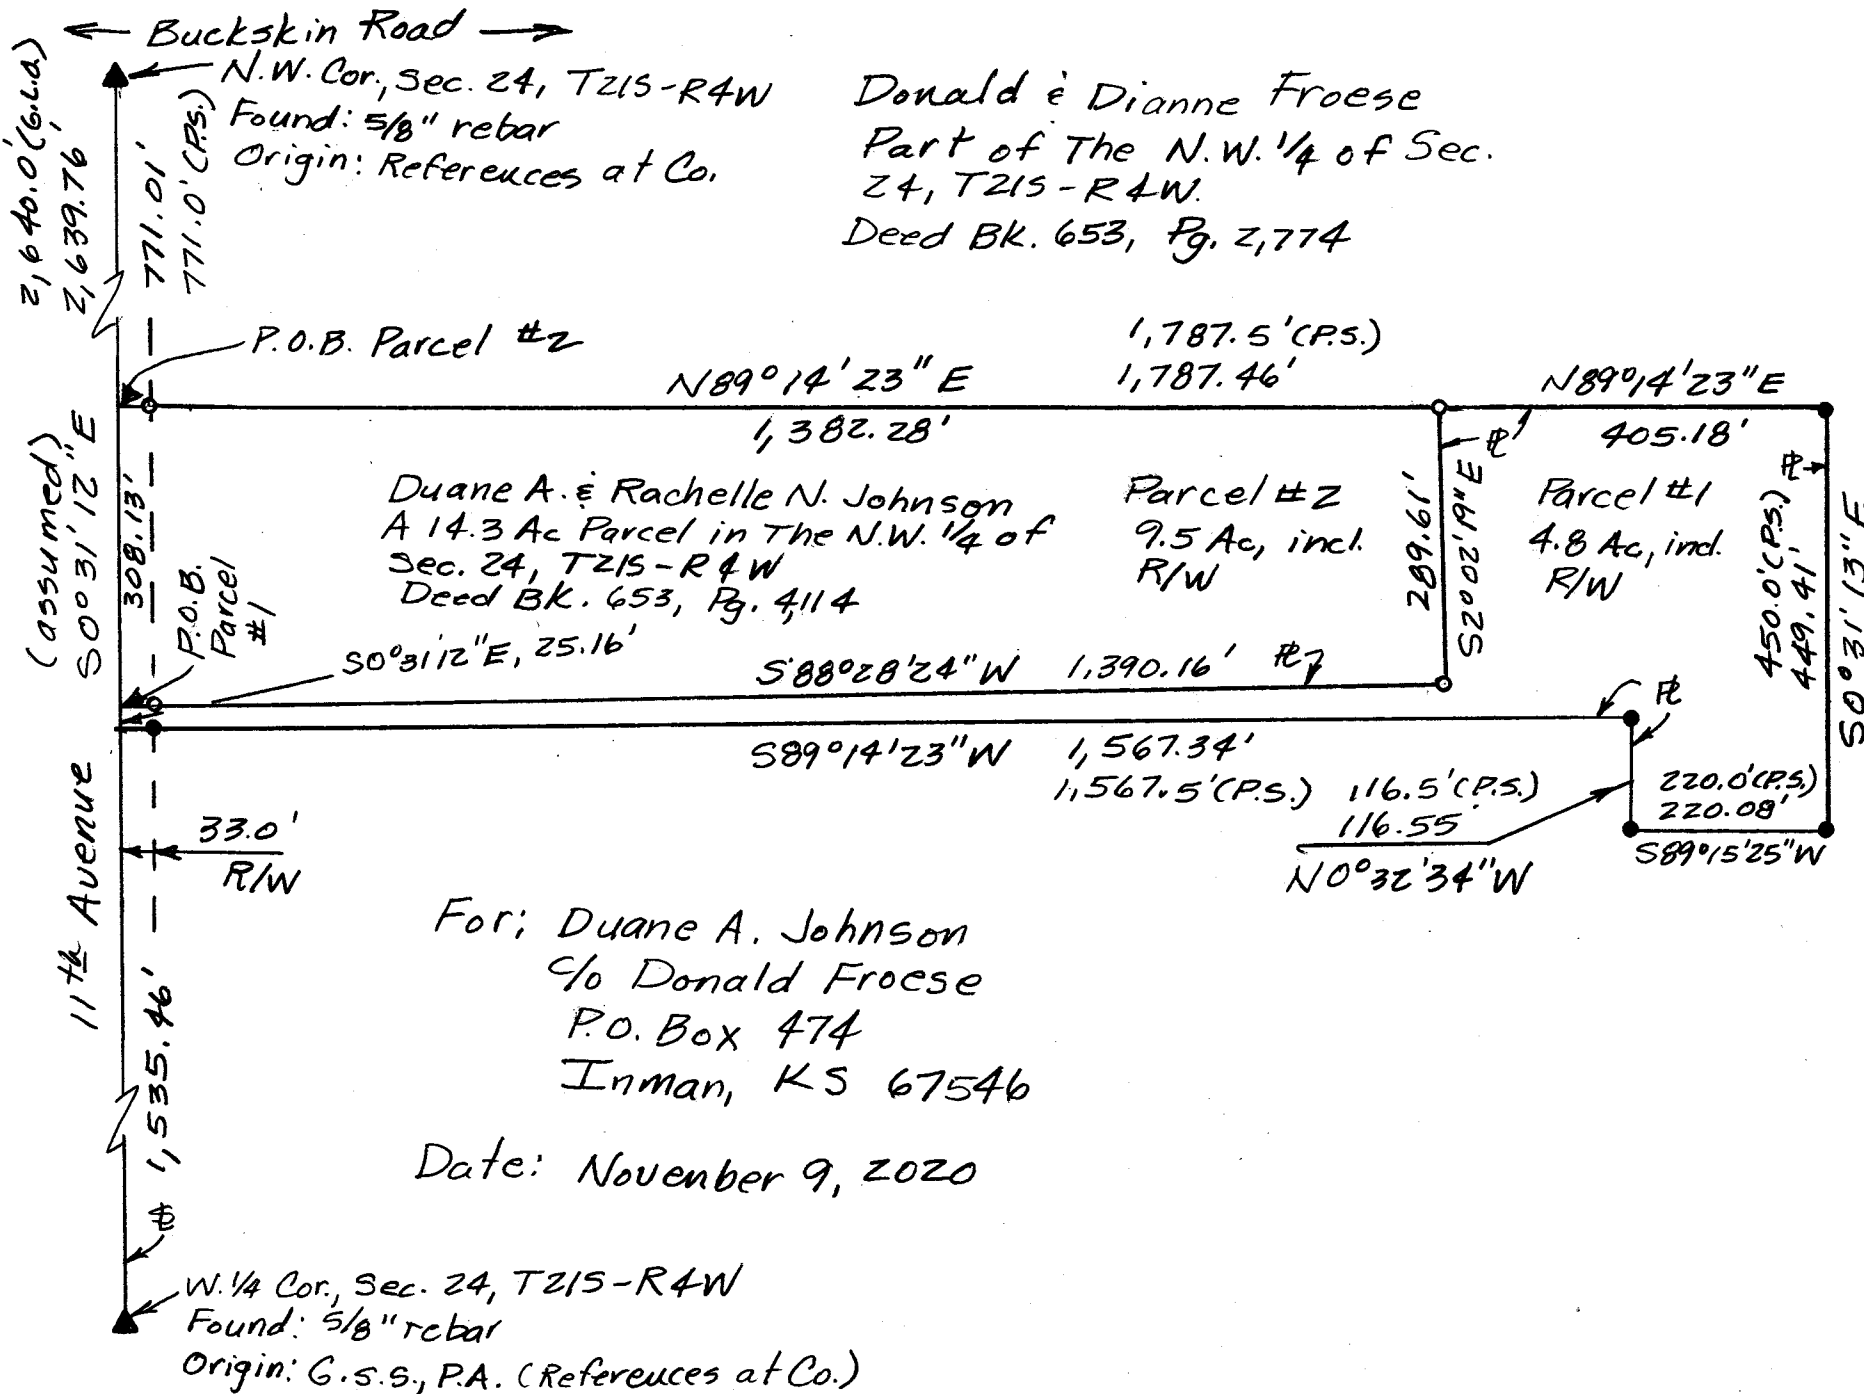 ← Buckskin Road →
N.W. Cor., Sec. 24, T21S-R4W
Found: 5/8" rebar
Origin: References at Co.
Donald & Dianne Froese
Part of The N.W. 1/4 of Sec.
24, T21S-R4W.
Deed Bk. 653, Pg. 2,774
2,640.0' (G.L.O.)
2,639.76'
771.01'
771.0' (P.S.)
P.O.B. Parcel #2
1,787.5' (P.S.)
N89°14'23"E 1,787.46'
N89°14'23"E
1,382.28'
405.18'
(assumed)
S0°31'12"E
308.13'
Duane A. & Rachelle N. Johnson
A 14.3 Ac Parcel in The N.W. 1/4 of
Sec. 24, T21S-R4W
Deed Bk. 653, Pg. 4,114
Parcel #2
9.5 Ac, incl.
R/W
289.61'
S2°02'19"E
℄
Parcel #1
4.8 Ac, incl.
R/W
450.0' (P.S.)
449.41'
S0°31'13"E
P.O.B.
Parcel
#1
S0°31'12"E, 25.16'
S88°28'24"W 1,390.16'
S89°14'23"W 1,567.34'
1,567.5' (P.S.)
116.5' (P.S.)
116.55'
N0°32'34"W
220.0' (P.S.)
220.08'
S89°15'25"W
11th Avenue
33.0'
R/W
1,535.46'
For: Duane A. Johnson
c/o Donald Froese
P.O. Box 474
Inman, KS 67546
Date: November 9, 2020
W. 1/4 Cor., Sec. 24, T21S-R4W
Found: 5/8" rebar
Origin: G.S.S., P.A. (References at Co.)